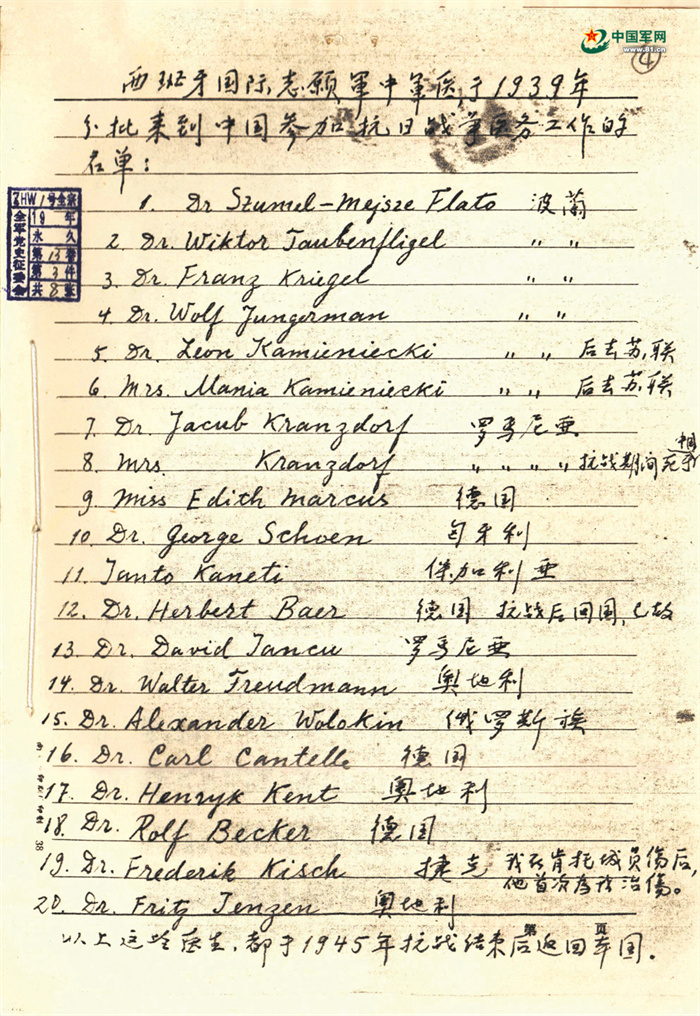 中国军网
www.81.cn
④
西班牙国际志愿軍中軍医,于1939年
分批来到中国参加抗日战争医务工作的
名单:
1. Dr Szumel-Mejsze Flato 波蘭
2. Dr. Wiktor Taubenfligel 〃 〃
3. Dr. Franz Kriegel 〃 〃
4. Dr. Wolf Jungerman 〃 〃
5. Dr. Leon Kamieniecki 〃 〃 后去苏联
6. Mrs. Mania Kamieniecki 〃 〃 后去苏联
7. Dr. Jacub Kranzdorf 罗马尼亚
8. Mrs. Kranzdorf 〃 〃 〃 〃 抗战期间死于中国
9. Miss Edith Marcus 德国
10. Dr. George Schoen 匈牙利
11. Ianto Kaneti 保加利亚
12. Dr. Herbert Baer 德国 抗战后回国,已故
13. Dr. David Iancu 罗马尼亚
14. Dr. Walter Freudmann 奥地利
15. Dr. Alexander Wolokin 俄罗斯族
16. Dr. Carl Cantelle 德国
17. Dr. Henryk Kent 奥地利
18. Dr. Rolf Becker 德国
19. Dr. Frederik Kisch 捷克 我在肯托城负伤后,
他首次为我治傷。
20. Dr. Fritz Jenzen 奥地利
第 页
以上这些医生,都于1945年抗战结束后返回本国。
ZHW1号全宗
19 年
永 久
第13卷
第3件
共8张
全军党史征委会
38